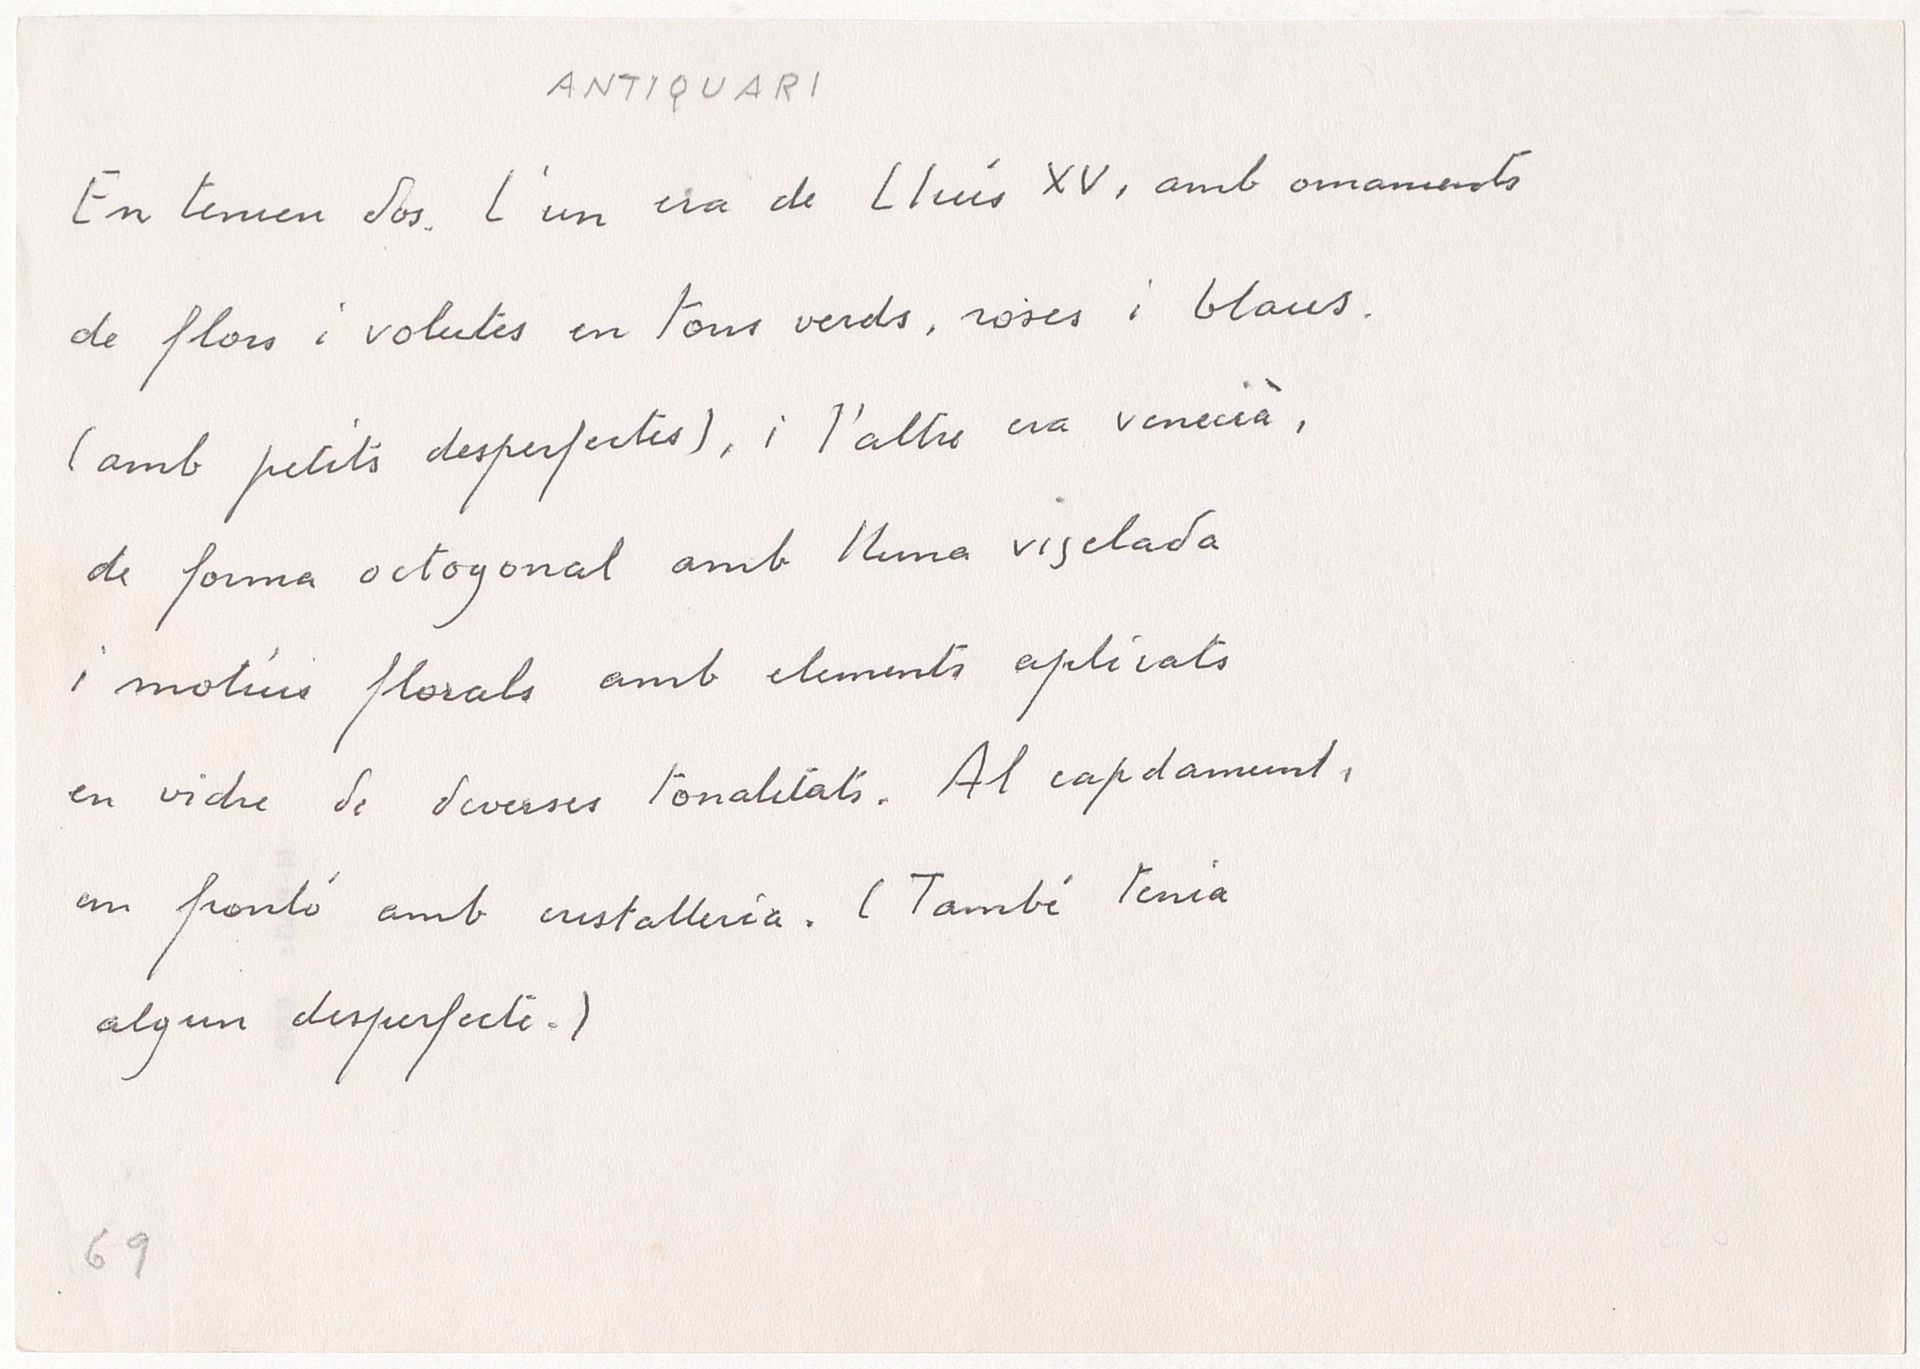 ANTIQUARI
En tenien dos. L'un era de Lluís XV, amb ornaments
de flors i volutes en tons verds, roses i blaus.
(amb petits desperfectes), i l'altre era venecià,
de forma octogonal amb lluna viselada
i motius florals amb elements aplicats
en vidre de diverses tonalitats. Al capdamunt,
un frontó amb cristalleria. (També tenia
algun desperfecte.)
69